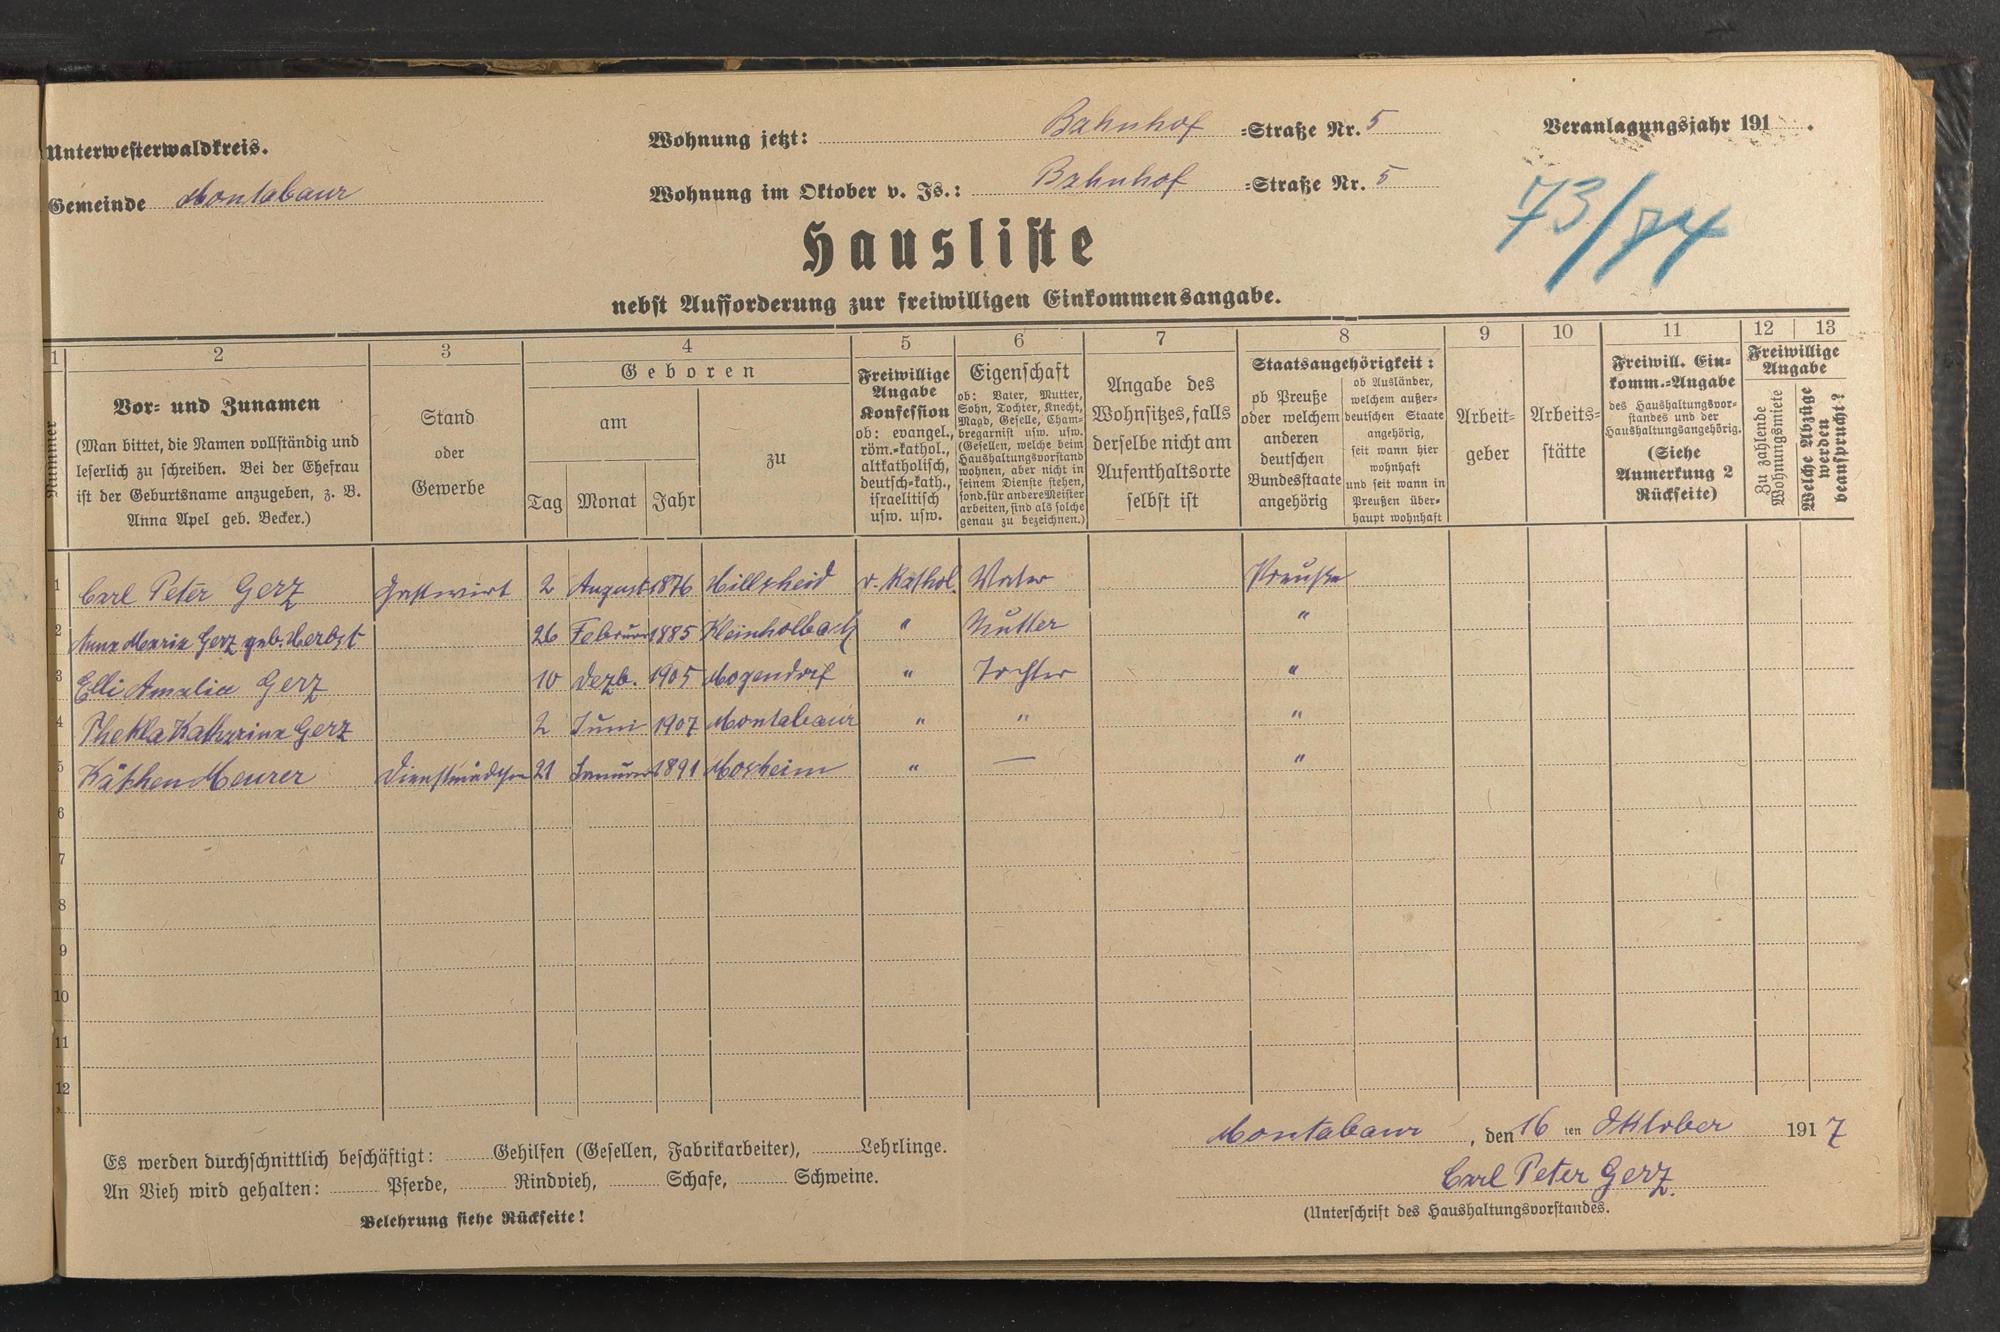 Unterwesterwaldkreis.
Wohnung jetzt: Bahnhof =Straße Nr. 5
Veranlagungsjahr 191 .
Gemeinde Montabaur
Wohnung im Oktober v. Js.: Bahnhof =Straße Nr. 5
73/74
Hausliste
nebst Aufforderung zur freiwilligen Einkommensangabe.
1 2 3 4 5 6 7 8 9 10 11 12 13
Nummer
Vor- und Zunamen
(Man bittet, die Namen vollständig und
leserlich zu schreiben. Bei der Ehefrau
ist der Geburtsname anzugeben, z. B.
Anna Apel geb. Becker.)
Stand
oder
Gewerbe
Geboren
am
Tag Monat Jahr
zu
Freiwillige
Angabe
Konfession
ob: evangel.,
röm.-kathol.,
altkatholisch,
deutsch-kath.,
israelitisch
usw. usw.
Eigenschaft
ob: Vater, Mutter,
Sohn, Tochter, Knecht,
Magd, Geselle, Cham-
bregarnist usw. usw.
(Gesellen, welche beim
Haushaltungsvorstand
wohnen, aber nicht in
seinem Dienste stehen,
sond. für andere Meister
arbeiten, sind als solche
genau zu bezeichnen.)
Angabe des
Wohnsitzes, falls
derselbe nicht am
Aufenthaltsorte
selbst ist
Staatsangehörigkeit:
ob Preuße
oder welchem
anderen
deutschen
Bundesstaate
angehörig
ob Ausländer,
welchem außer-
deutschen Staate
angehörig,
seit wann hier
wohnhaft
und seit wann in
Preußen über-
haupt wohnhaft
Arbeit-
geber
Arbeits-
stätte
Freiwill. Ein-
komm.-Angabe
des Haushaltungsvor-
standes und der
Haushaltungsangehörig.
(Siehe
Anmerkung 2
Rückseite)
Freiwillige
Angabe
Zu zahlende
Wohnungsmiete
Welche Abzüge
werden
beansprucht?
1 Carl Peter Gerz Gastwirt 2 August 1876 Hillscheid r. Kathol. Vater Preuße
2 Anna Maria Gerz geb. Herbst 26 Februar 1885 Kleinholbach " Mutter "
3 Elli Amalia Gerz 10 Dezb. 1905 Mogendorf " Tochter "
4 Thekla Katharina Gerz 2 Juni 1907 Montabaur " " "
5 Käthen Meurer Dienstmädchen 21 Januar 1891 Morheim " — "
6
7
8
9
10
11
12
Montabaur, den 16 ten Oktober 1917
Es werden durchschnittlich beschäftigt: Gehilfen (Gesellen, Fabrikarbeiter), Lehrlinge.
An Vieh wird gehalten: Pferde, Rindvieh, Schafe, Schweine.
Carl Peter Gerz.
(Unterschrift des Haushaltungsvorstandes.
Belehrung siehe Rückseite!